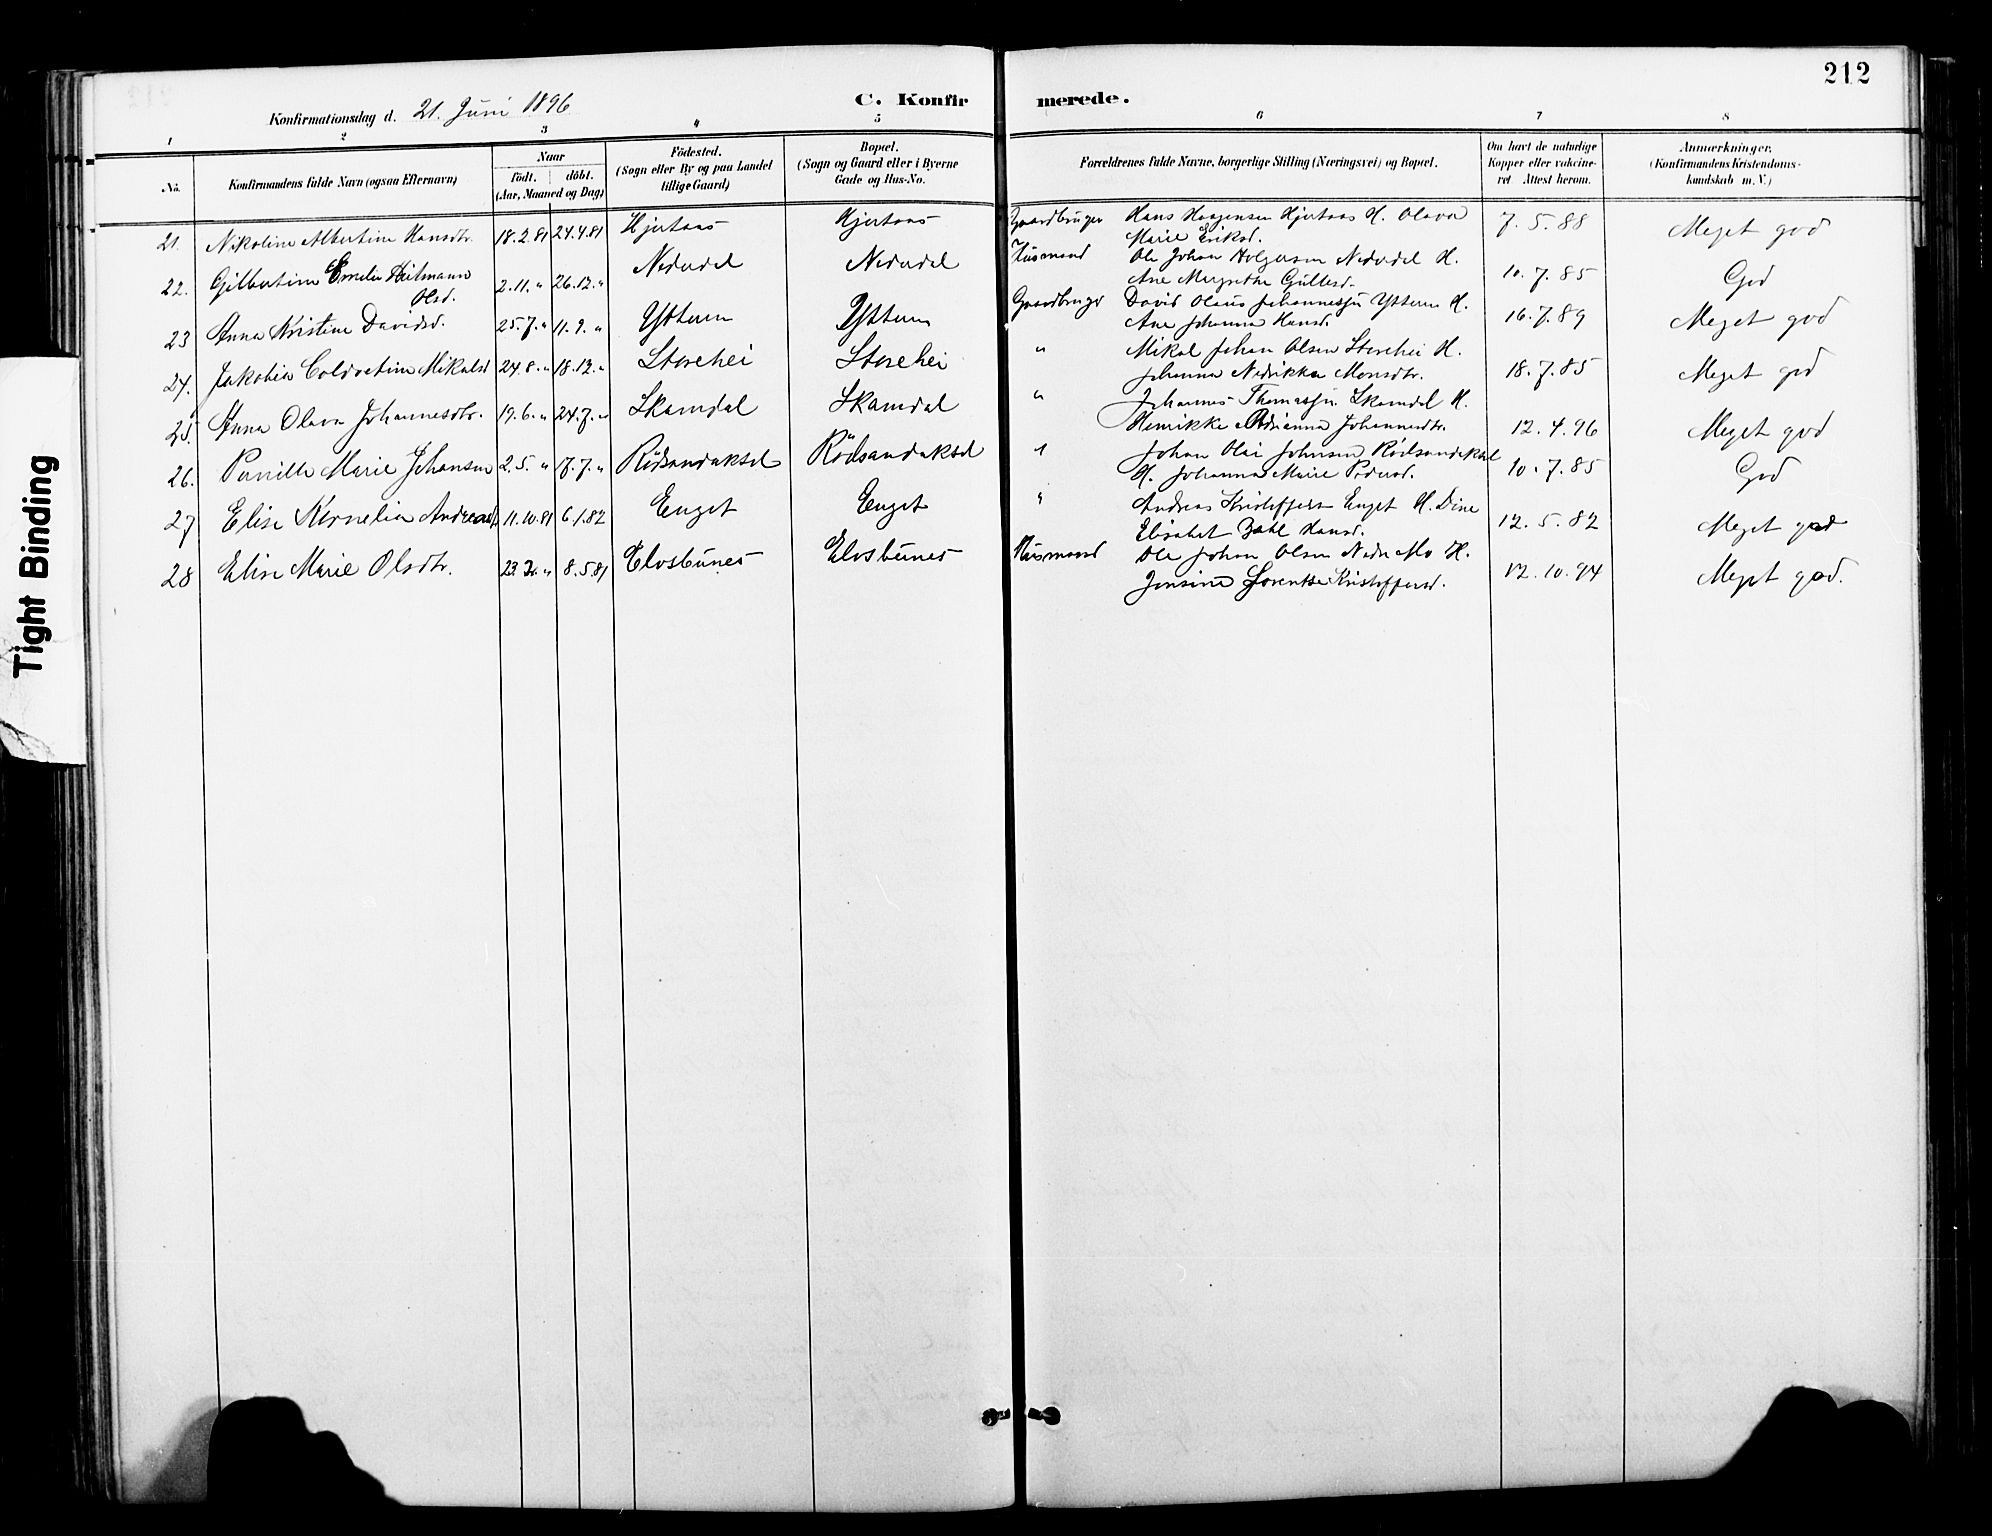 212
Konfirmationsdag d. 21. Juni 1896
C. Konfirmerede.
1 2 3 4 5 6 7 8
No.
Konfirmandens fulde Navn (ogsaa Efternavn)
Naar
födt. döbt.
(Aar, Maaned og Dag)
Födested.
(Sogn eller By og paa Landet
tillige Gaard)
Bopæl.
(Sogn og Gaard eller i Byerne
Gade og Hus-No.
Forældrenes fulde Navne, borgerlige Stilling (Næringsvei) og Bopæl.
Om havt de naturlige
Kopper eller vakcine-
ret. Attest herom.
Anmærkninger,
(Konfirmandens Kristendoms-
kundskab m. V.)
21. Nikoline Albertine Hansdtr. 18.2.81 24.4.81 Hjertaas Hjertaas Gaardbruger Hans Haagensen Hjertaas H. Olava
Marie Eriksd. 7.5.88 Meget god
22. Gjilbertine Emelie Heitmann
Olsd. 2.11. " 26.12. " Nedredal Nedredal Husmand Ole Johan Holgersen Nedredal H.
Ane Margrethe Gullesd. 10.7.85 God
23 Anna Kristine Davidsd. 25.7. " 11.9. " Ytteren Ytteren Gaardbruger David Olaus Johannessen Ytteren H.
Ane Johanna Hansd. 16.7.89 Meget god
24. Jakobia Mikalsd 24.8. " 18.12. " Storehei Storehei " Mikal Johan Olsen Storehei H.
Johanna Nedrikka Monsdtr. 18.7.85 Meget god
25. Anna Olava Johannesdtr. 19.6. " 24.7. " Skamdal Skamdal " Johannes Thomassen Skamdal H.
Henrikke Adrianna Johannesdtr. 12.4.96 Meget god
26. Pernille Marie Johansen 2.5. " 17.7. " Rødsandaksel Rødsandaksel " Johan Olai Johnsen Rødsandaksel
H. Johanna Marie Pedersd. 10.7.85 God
27 Elise Kornelia Andreasd. 11.10.81 6.1.82 Enget Enget " Andreas Kristoffers. Enget H. Dine
Elisabet Zahl Hansd. 12.5.82 Meget god
28 Elise Marie Olsdtr. 23.2. " 8.5.81 Elvsbunes Elvsbunes Husmand Ole Johan Olsen Nedre Mo H.
Jensine Lorentse Kristoffersd. 12.10.94 Meget god.
Tight Binding